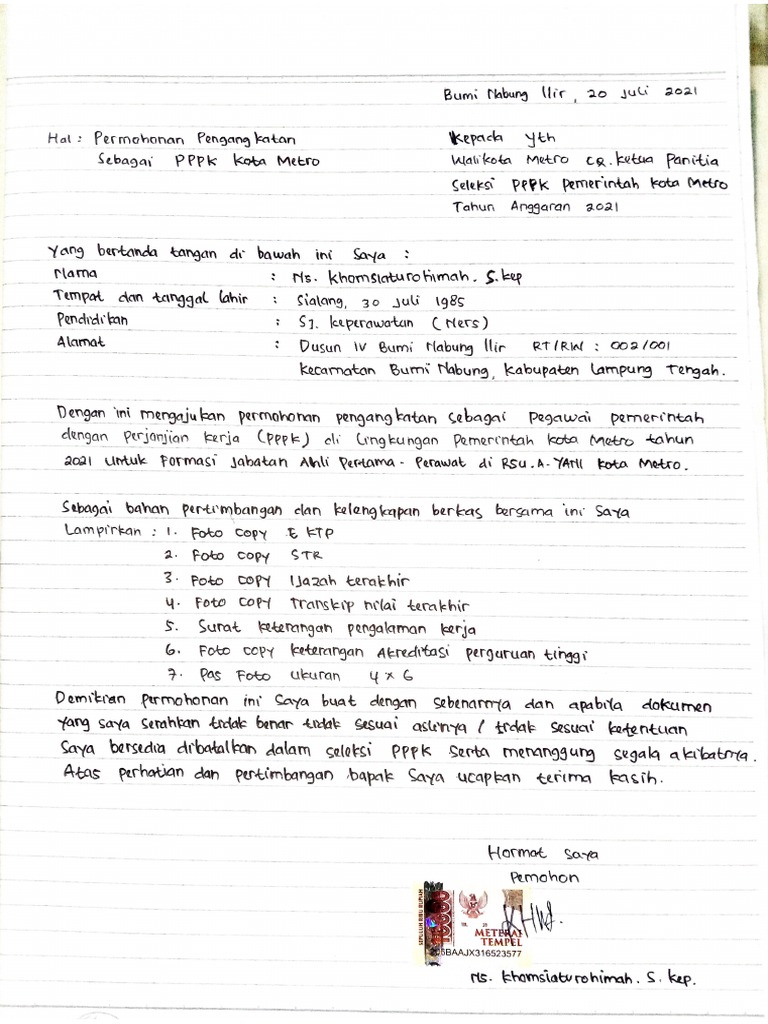 Bumi Nabung Ilir, 20 Juli 2021
Hal : Permohonan Pengangkatan
Sebagai PPPK Kota Metro
Kepada Yth
Walikota Metro CQ. Ketua Panitia
Seleksi PPPK Pemerintah Kota Metro
Tahun Anggaran 2021
Yang bertanda tangan di bawah ini Saya :
Nama : Ns. Khomsiaturohimah. S.kep
Tempat dan tanggal lahir : Sialang, 30 Juli 1985
Pendidikan : S1. Keperawatan (Ners)
Alamat : Dusun IV Bumi Nabung Ilir RT/RW : 002/001
Kecamatan Bumi Nabung, Kabupaten Lampung Tengah.
Dengan ini mengajukan permohonan pengangkatan sebagai Pegawai pemerintah
dengan Perjanjian Kerja (PPPK) di Lingkungan Pemerintah Kota Metro tahun
2021 untuk Formasi Jabatan Ahli Pertama - Perawat di RSU.A-YANI Kota Metro.
Sebagai bahan pertimbangan dan kelengkapan berkas bersama ini Saya
Lampirkan : 1. Foto Copy E KTP
2. Foto Copy STR
3. Foto Copy Ijazah terakhir
4. Foto Copy Transkip nilai terakhir
5. Surat keterangan pengalaman kerja
6. Foto Copy keterangan Akreditasi perguruan tinggi
7. Pas Foto ukuran 4 x 6
Demikian permohonan ini Saya buat dengan sebenarnya dan apabila dokumen
yang saya serahkan tidak benar tidak sesuai aslinya / tidak sesuai ketentuan
Saya bersedia dibatalkan dalam seleksi PPPK serta menanggung segala akibatnya.
Atas perhatian dan pertimbangan bapak Saya ucapkan terima kasih.
Hormat Saya
Pemohon
SEPULUH RIBU RUPIAH
10000
METERAI
TEMPEL
205BAAJX316523577
Ns. Khomsiaturohimah. S. kep.